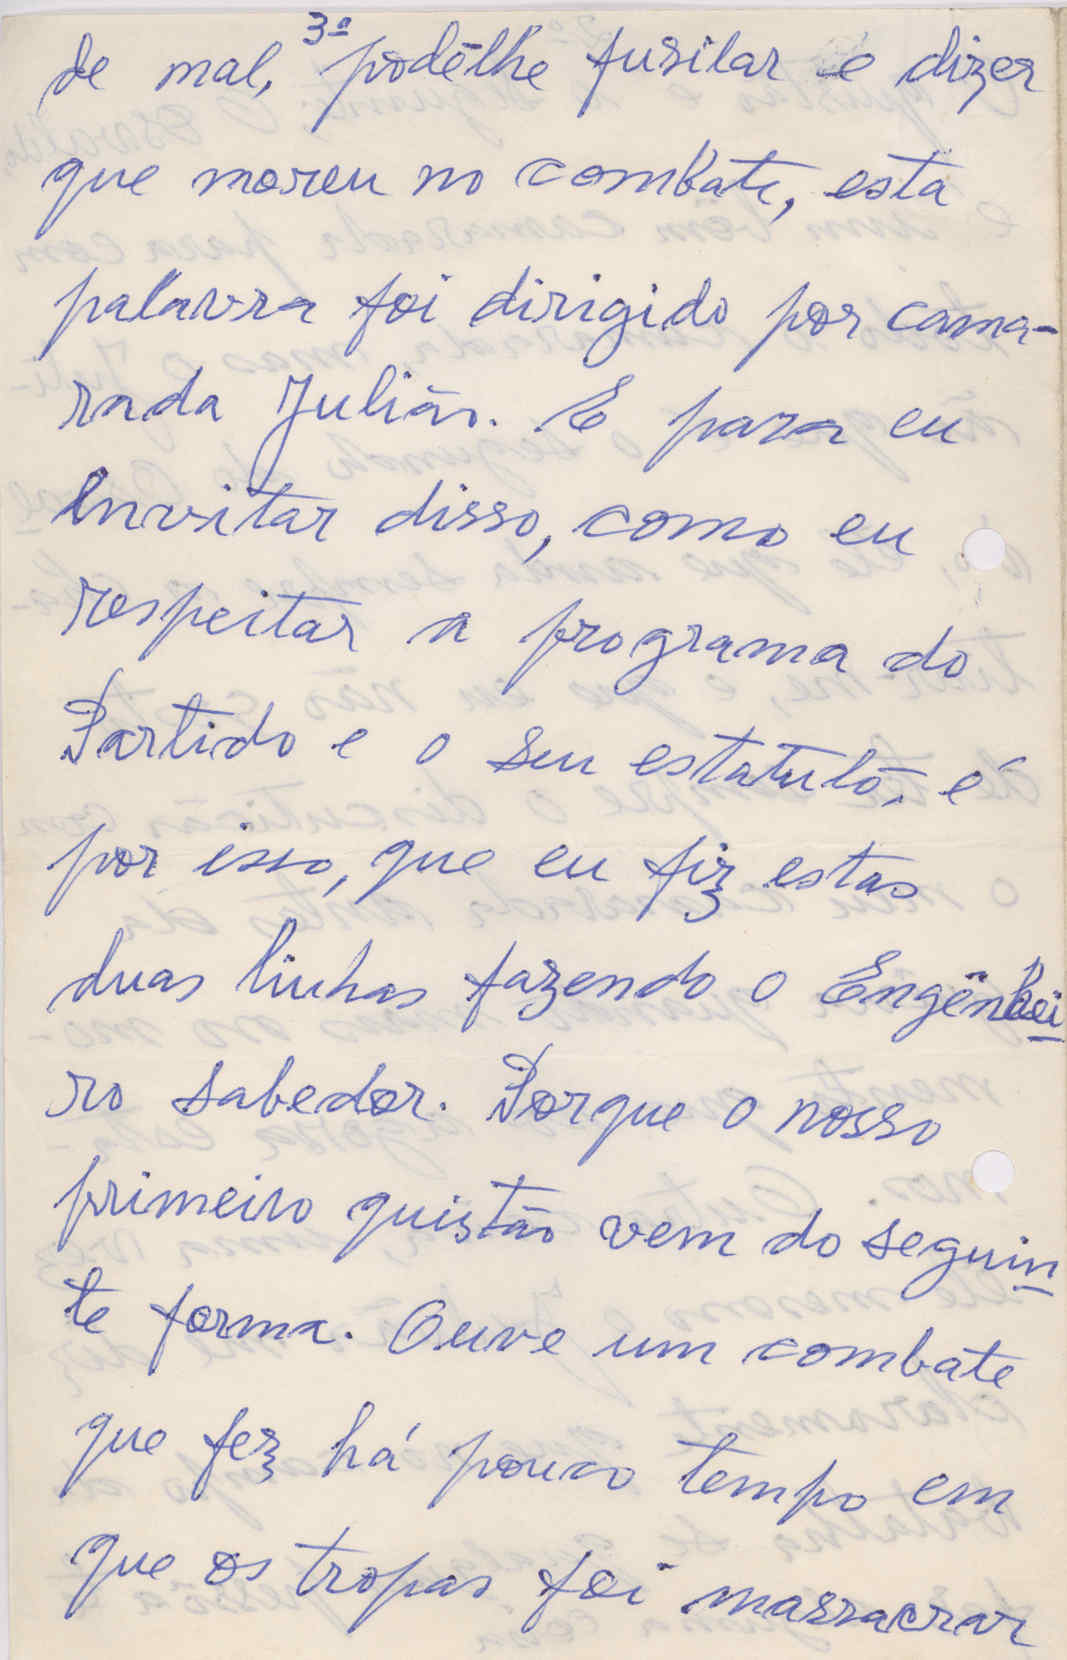 3º
de mal, podêlhe fusilar e dizer
que moreu no combate, esta
palavra foi dirigido por cama-
rada Julião. E para eu
invitar disso, como eu
respeitar a programa do
Partido e o seu estatuto, é
por isso, que eu fiz estas
duas linhas fazendo o Engenhei
ro sabedor. Porque o nosso
primeiro quistão vem do seguin
te forma. Ouve um combate
que fez há pouco tempo em
que os tropas foi massacrar